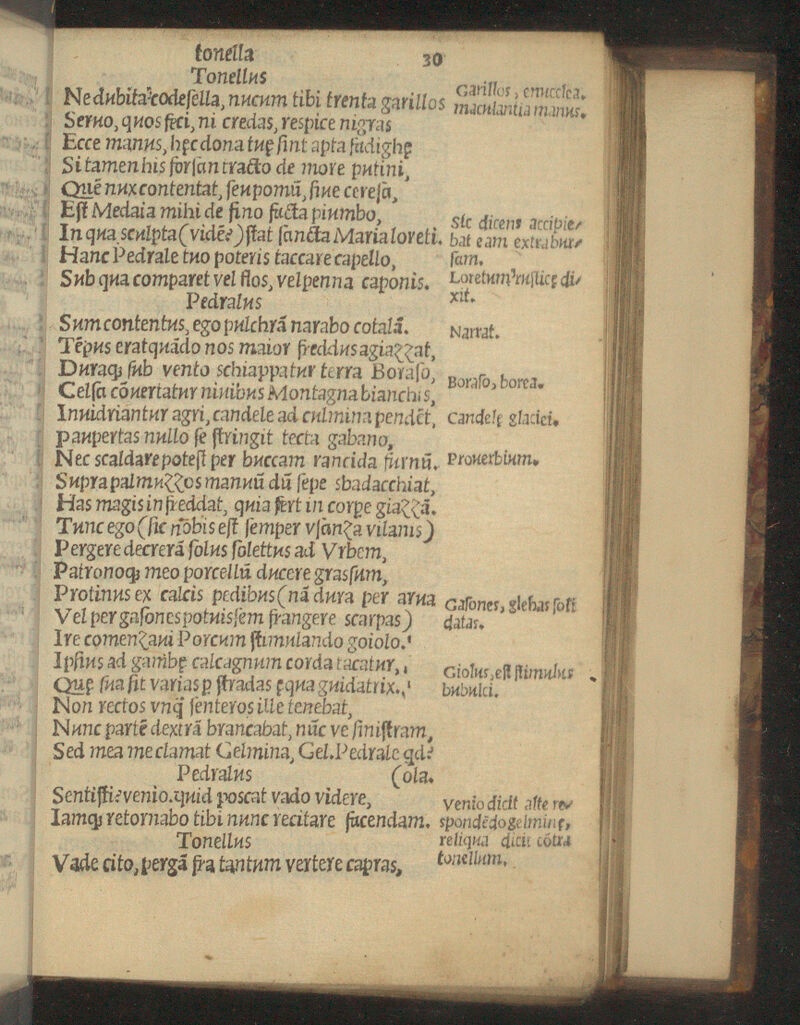 tonella 30
Tonellus
Ne dubita: codesella, nucum tibi trenta garillos
Seruo, quos feci, ni credas, respice nigras
Ecce manus, hęc dona tuę sint apta fadighę
Si tamen his forsan tracto de more putini,
Quē nux contentat, seu pomū, siue ceresa,
Est Medaia mihi de fino facta piumbo,
In qua sculpta (vidē?) stat sancta Maria loreti.
Hanc Pedrale tuo poteris taccare capello,
Sub qua comparet vel flos, vel penna caponis.
Pedralus
Sum contentus, ego pulchrā narabo cotalā.
Tēpus erat quādo nos maior freddus agiazzat,
Duraq; sub vento schiappatur terra Boraso,
Celsa cōuertatur niuibus Montagna bianchis,
Inuidriantur agri, candele ad culmina pendēt,
paupertas nullo se stringit tecta gabano,
Nec scaldare potest per buccam rancida furnū.
Supra palmuzzos manuū dū sepe sbadacchiat,
Has magis infreddat, quia fert in corpe giazzā.
Tunc ego (sic nobis est semper vsanza vilanis)
Pergere decrerā solus solettus ad Vrbem,
Patronoq; meo porcellū ducere grassum,
Protinus ex calcis pedibus (nā dura per arua
Vel per gasones potuissem frangere scarpas)
Ire comenzaui Porcum stimulando goiolo.
Ipsius ad gambę calcagnum corda tacatur,
Quę sua sit varias p stradas ęqua guidatrix.
Non rectos vnq̄ senteros ille tenebat,
Nunc partē dextrā brancabat, nūc ve sinistram,
Sed mea me clamat Gelmina, Gel. Pedrale qd?
Pedralus (ola.
Sentisti? venio. quid poscat vado videre,
Iamq; retornabo tibi nunc recitare facendam.
Tonellus
Vade cito, pergā fra tantum vertere capras,
Garillos, enucclea.
maculantia manus.
Sic dicens accipie/
bat eam extrabur/
sam.
Loretum rusticę di/
xit.
Narrat.
Boraso, borea.
Candelę glaciei.
Prouerbium.
Gasones, glebas soli
datas.
Giolus, est stimulus
bubulci.
Venio dicit alte re/
spondēdo gelminę,
reliqua dicit cōtra
tonellum.